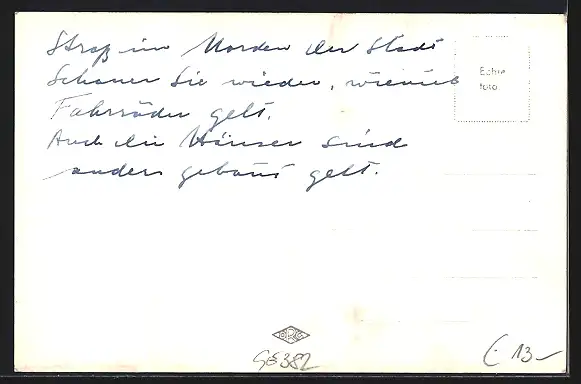 Straß im Norden der Stadt
Schauen Sie wieder, wieviel
Fahrräder gelt.
Auch die Häuser sind
anders gebaut gelt.
Echte
foto.
GS382
€ 13-